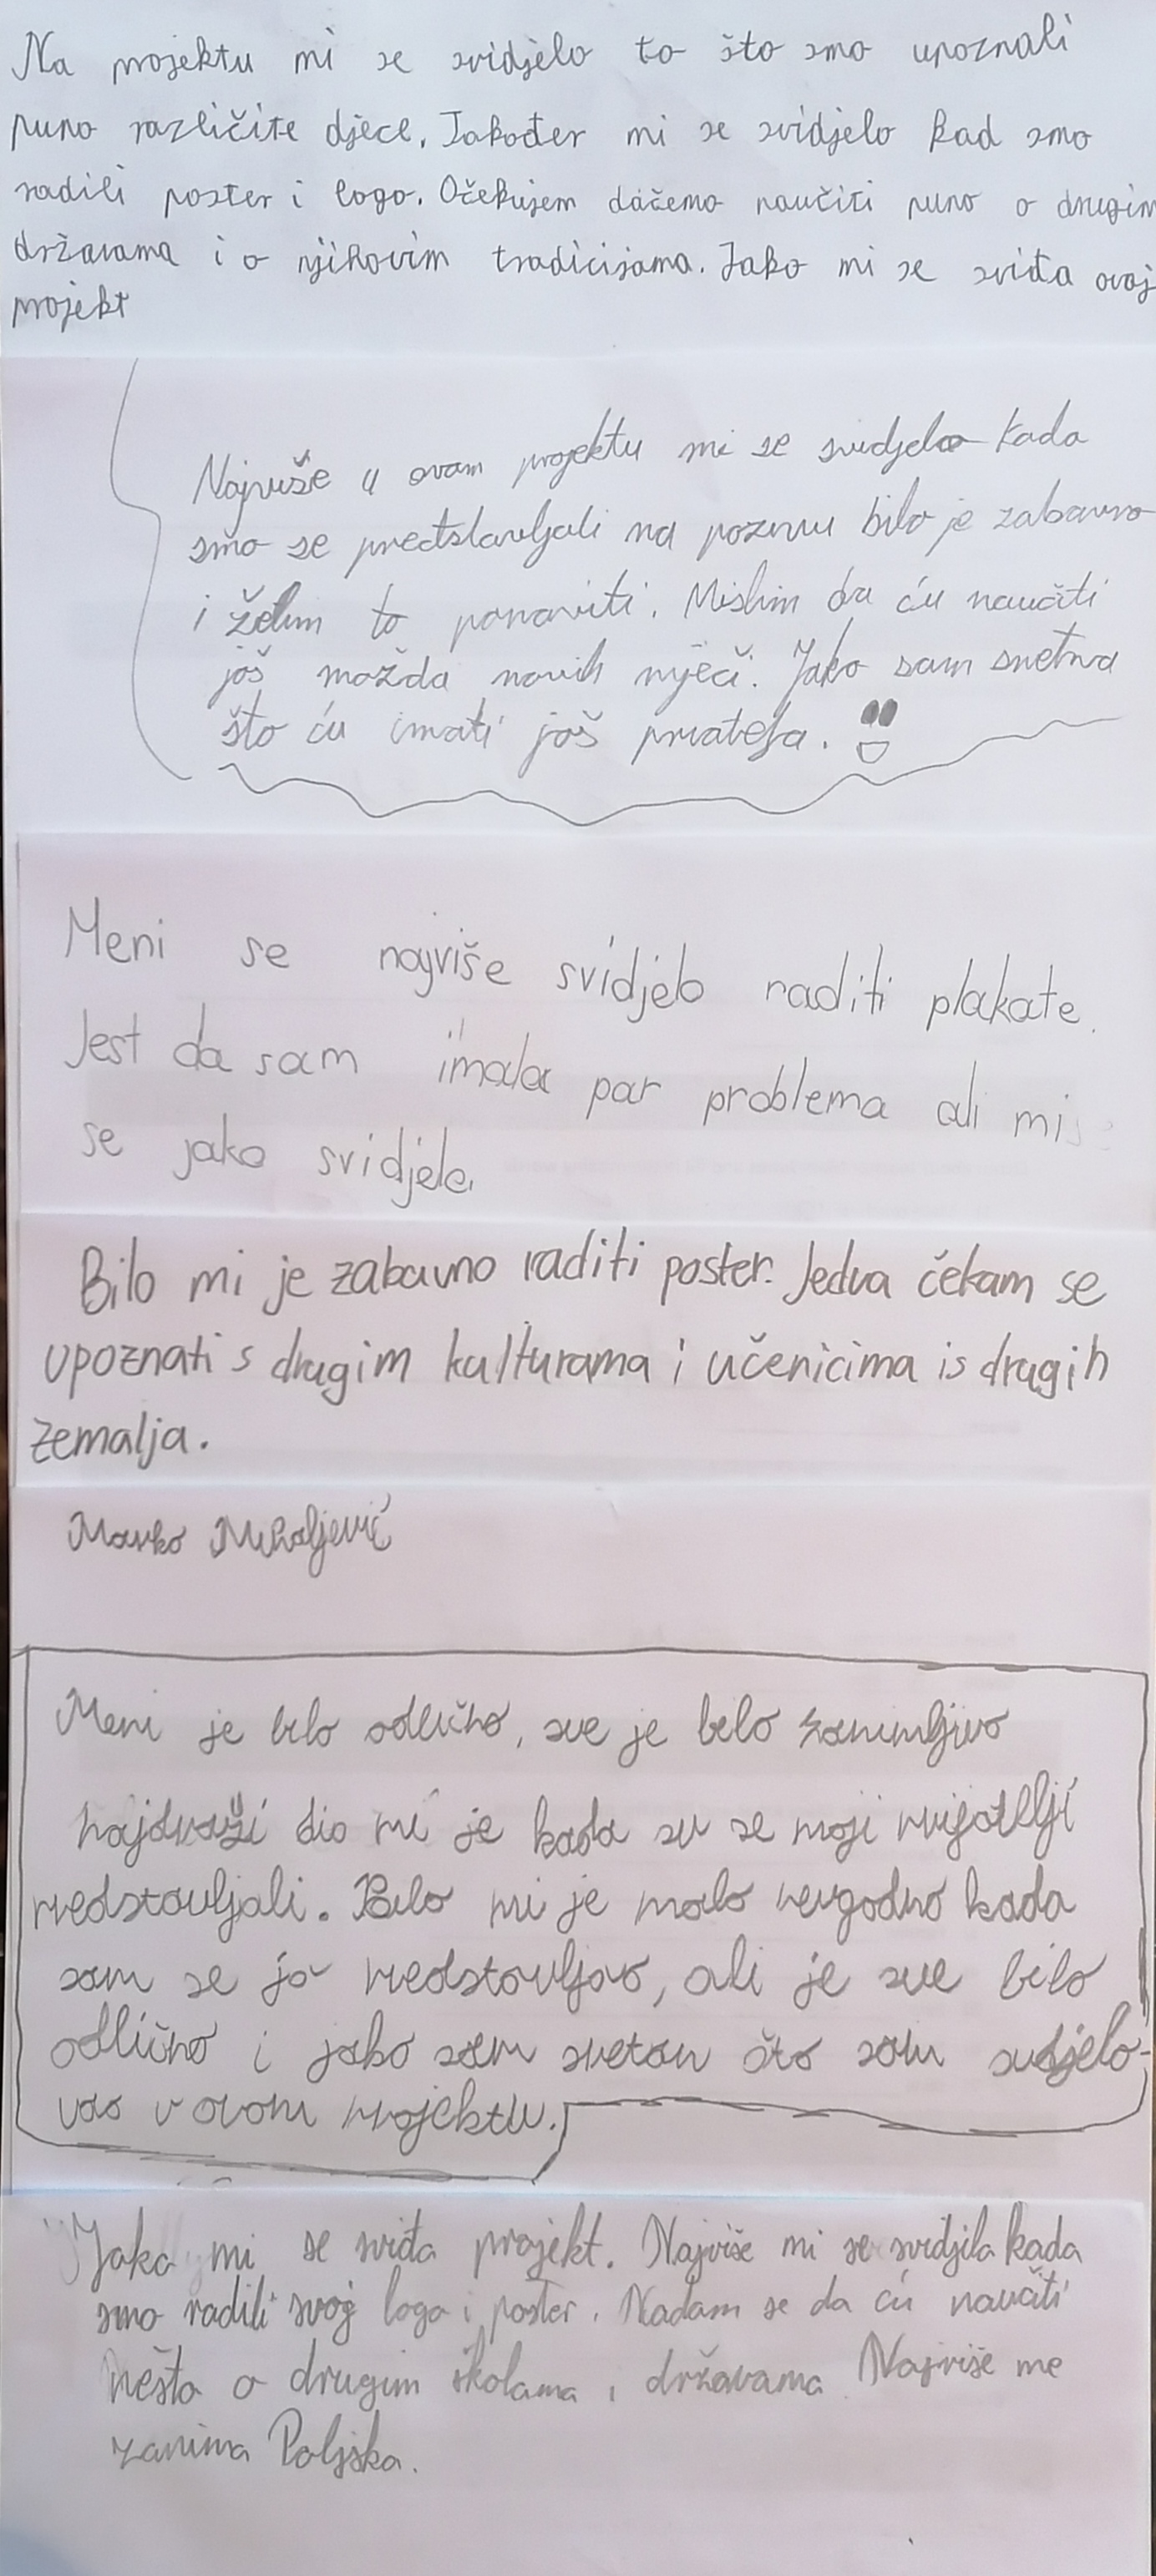 Na projektu mi se svidjelo to što smo upoznali
puno različite djece. Također mi se svidjelo kad smo
radili poster i logo. Očekujem daćemo naučiti puno o drugim
državama i o njihovim tradicijama. Jako mi se sviđa ovaj
projekt
Najviše u ovom projektu mi se svidjelo kada
smo se predstavljali na pozivu bilo je zabavno
i želim to ponoviti. Mislim da ću naučiti
još možda novih riječi. Jako sam sretna
što ću imati još prijatelja.
Meni se najviše svidjelo raditi plakate.
Jest da sam imala par problema ali mi
se jako svidjelo.
Bilo mi je zabavno raditi poster. Jedva čekam se
upoznati s drugim kulturama i učenicima is drugih
zemalja.
Marko Mihaljević
Meni je bilo odlično, sve je bilo zanimljivo
najdraži dio mi je kada su se moji prijatelji
predstavljali. Bilo mi je malo neugodno kada
sam se ja predstavljao, ali je sve bilo
odlično i jako sam sretan što sam sudjelo-
vao u ovom projektu.
Jako mi se sviđa projekt. Najviše mi se svidjila kada
smo radili svoj logo i poster. Nadam se da ću naučiti
nešto o drugim školama i državama. Najviše me
zanima Poljska.